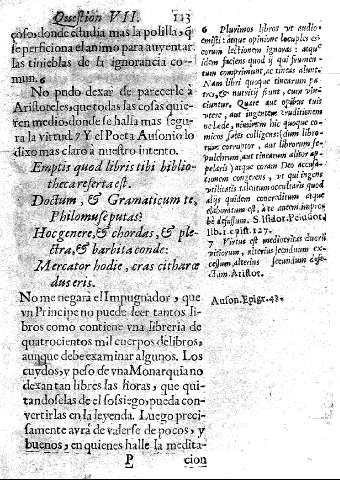 Question VII. 113
coso, donde estudia mas la polilla, q̃
se perficiona el animo para auyentar
las tinieblas de la ignorancia co-
mun. 6
No pudo dexar de parecerle à
Aristoteles, que todas las cosas quie-
ren medio, donde se halla mas segu-
ra la virtud, 7 Y el Poeta Ausonio lo
dixo mas claro à nuestro intento.
Emptis quod libris tibi biblio-
theca referta est.
Doctum, & Gramaticum te,
Philomuse putas?
Hoc genere, & chordas, & ple-
ctra, & barbita conde:
Mercator hodie, cras citharœ
dus eris.
No me negarà el Impugnador, que
vn Principe no puede leer tantos li-
bros como contiene vna libreria de
quatrocientos mil cuerpos de libros,
aunque debe examinar algunos. Los
cuydos, y peso de vna Monarquia no
dexan tan libres las horas, que qui-
tandoselas de el sossiego, pueda con-
vertirlas en la leyenda. Luego preci-
samente avrà de valerse de pocos, y
buenos, en quienes halle la medita-
P cion
6 Plurimos libros vt audio
emisti: atque opinione locuples es
eorum lectionem ignoras: atque
idem faciens quod ij qui frumen-
tum comprimunt, ac tineas alunt.
Nam libri quoque tineas pa-
riunt, & nutriri sunt, cum vin-
ciuntur. Quare aut opibus tuis
vtere, aut ingentem eruditionem
ne lede, neminem hic quoque co-
micus sales colligens (dum libro-
rum corruptor, aut librorum se-
pulchrum, aut tinearum altor ap-
pelaris) atque coram Deo accusa-
tionem congerens, vt qui ingen
vtilitatis talentum occultaris quod
alijs quidem concreditum atque
elaboratum est, à te autem impro-
bè defossum. S. Isidor. Pelusiot.
lib. 1. epist. 127.
Virtus est mediocritas duorũ
vitiorum, alterius secundum ex-
cessum, alterius secundum defe-
ctum. Aristot.
Auson. Epigr. 43.